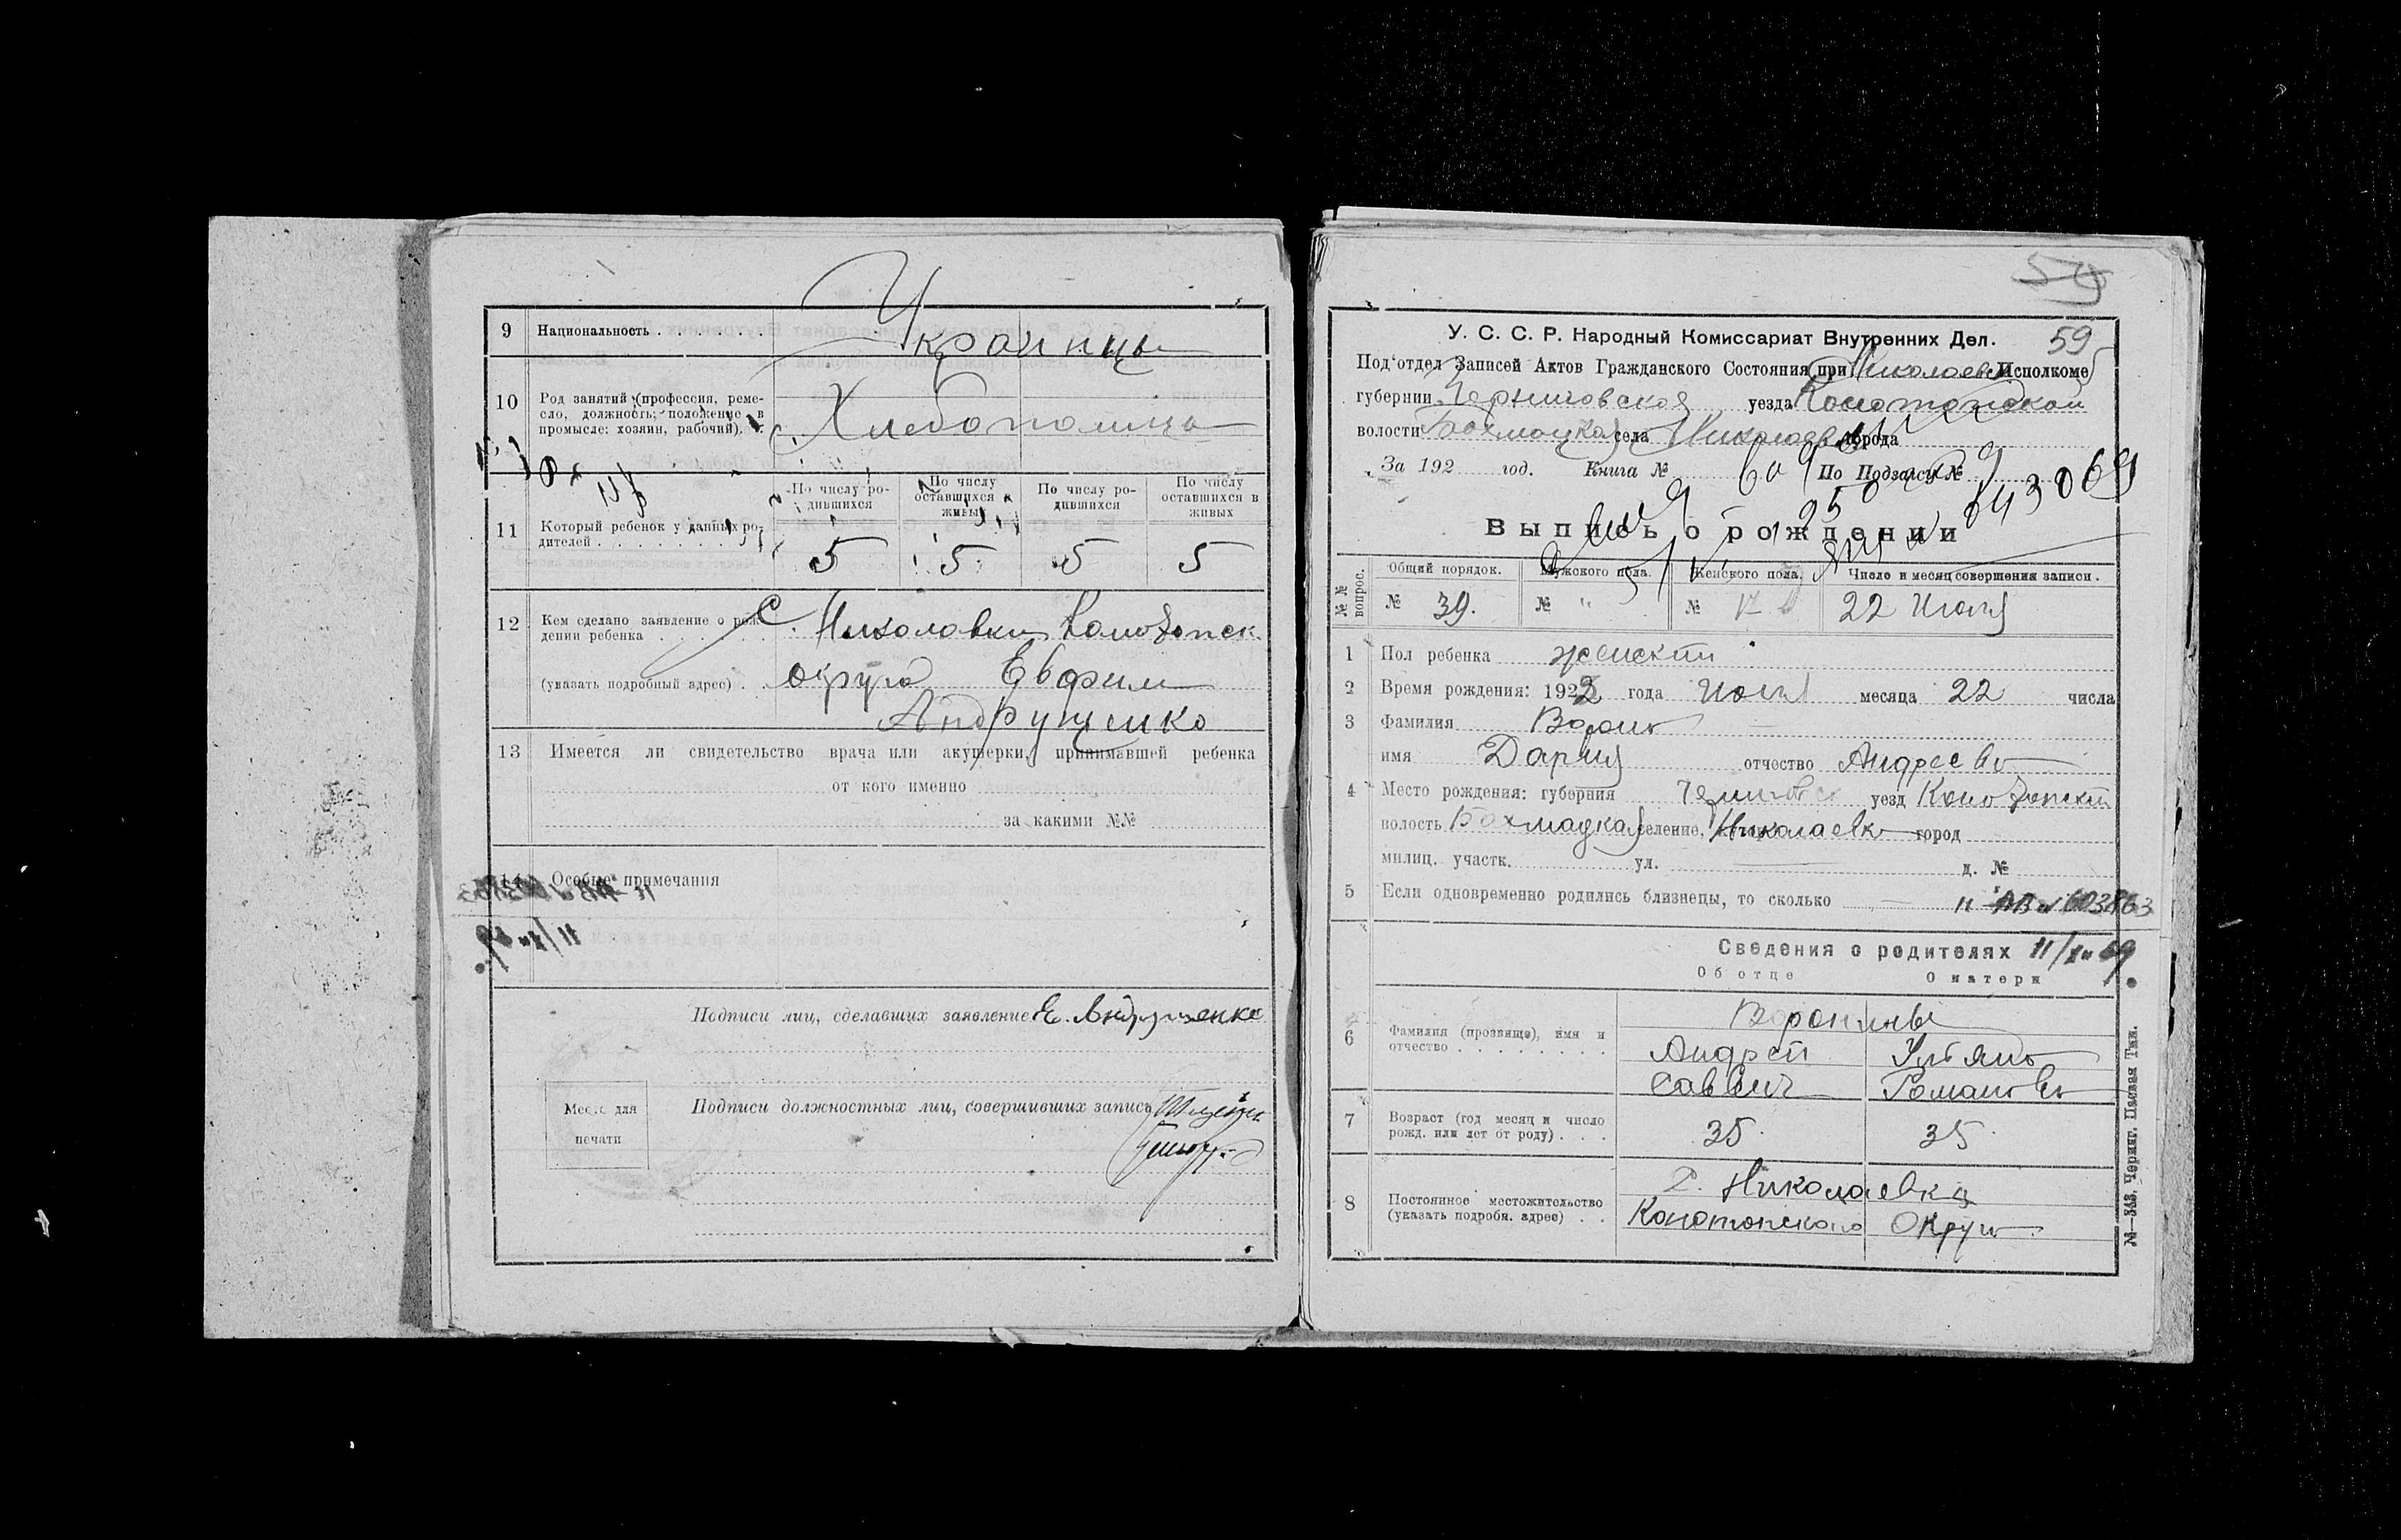 9 Национальность . . . . . . .
Украинцы
10 Род занятий (профессия, реме-
сло, должность; положение в
промысле: хозяин, рабочий). .
Хлебопашцы
По числу ро-
дившихся
По числу
оставшихся в
живых
По числу ро-
дившихся
По числу
оставшихся в
живых
11 Который ребенок у данных ро-
дителей . . . . . . . .
5 5 5 5
12 Кем сделано заявление о рож-
дении ребенка . . . . . .
С. Николавки Конотопск
(указать подробный адрес) . .
округа Евфим
Андрущенко
13 Имеется ли свидетельство врача или акушерки, принимавшей ребенка
от кого именно
за какими №№
14 Особые примечания
Подписи лиц, сделавших заявление Е. Андрущенко
Место для
печати
Подписи должностных лиц, совершивших запись
59
59
У. С. С. Р. Народный Комиссариат Внутренних Дел.
Под'отдел Записей Актов Гражданского Состояния при Николаевск Исполкоме
губернии Черниговской уезда Конотопской
волости Бахмацкая села Николаевка города
За 192 год. Книга № По Подзапси №
043069
Выпись о рождении
№№ вопрос.
Общий порядок.
Мужского пола.
Женского пола.
Число и месяц совершения записи.
№ 39. № " № 17 22 Июля
1 Пол ребенка женский
2 Время рождения: 1922 года Июля месяца 22 числа
3 Фамилия
имя Дария отчество Андреевн
4 Место рождения: губерния Черниговск уезд Конотопский
волость Бахмацкая селение, Николаевк город
милиц. участк. ул. д. №
5 Если одновременно родились близнецы, то сколько — 11 АВ № 603863
Сведения о родителях 11/X 69
Об отце О матери
6 Фамилия (прозвище), имя и
отчество . . . . . . . .
Воронины
Андрей Ульяна
Саввич Романовн
7 Возраст (год месяц и число
рожд. или лет от роду) . . .
35 35
8 Постоянное местожительство
(указать подробн. адрес) . .
С. Николаевка
Конотопского Округа
№—343. Черниг. Цасвая Тип.